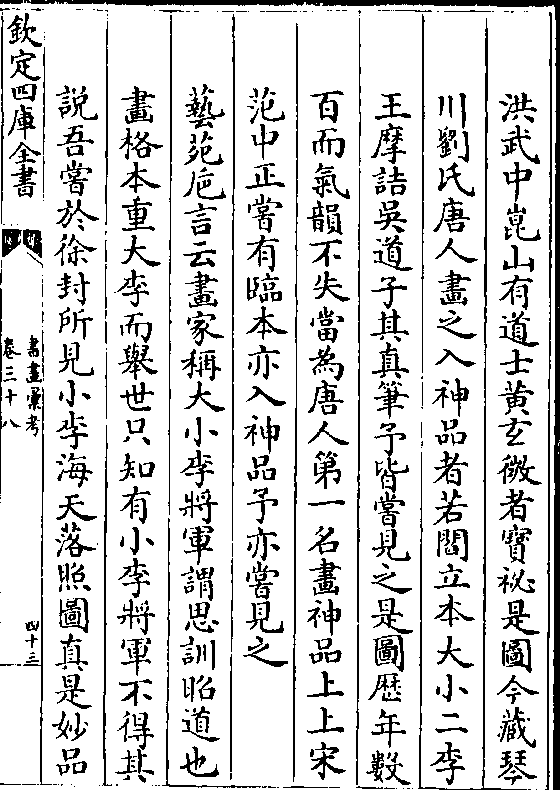 洪武中崑山有道士黄玄微者寳祕是圖今藏琴
川劉氏唐人畫之入神品者若閻立本大小二李
王摩詰吳道子其真筆予皆嘗見之是圖歴年數
百而氣韻不失當為唐人第一名畫神品上上宋
范中正嘗有臨本亦入神品予亦嘗見之
藝苑巵言云畫家稱大小李將軍謂思訓昭道也
畫格本重大李而舉世只知有小李將軍不得其
説吾嘗於徐封所見小李海天落照圖真是妙品
欽定四庫全書
書畫彙考
卷三十八
四十三